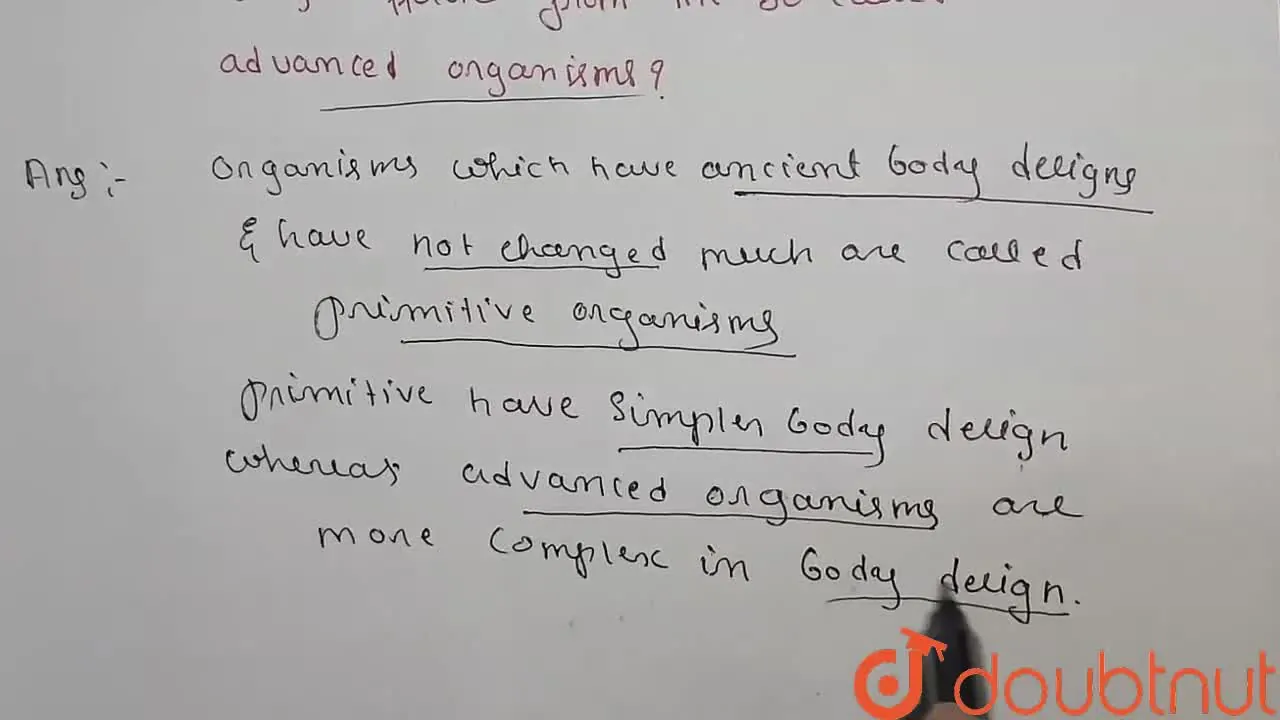 advanced organisms?
Ans:- organisms which have ancient body designs
& have not changed much are called
primitive organisms
primitive have simpler body design
whereas advanced organisms are
more complex in body design.
doubtnut